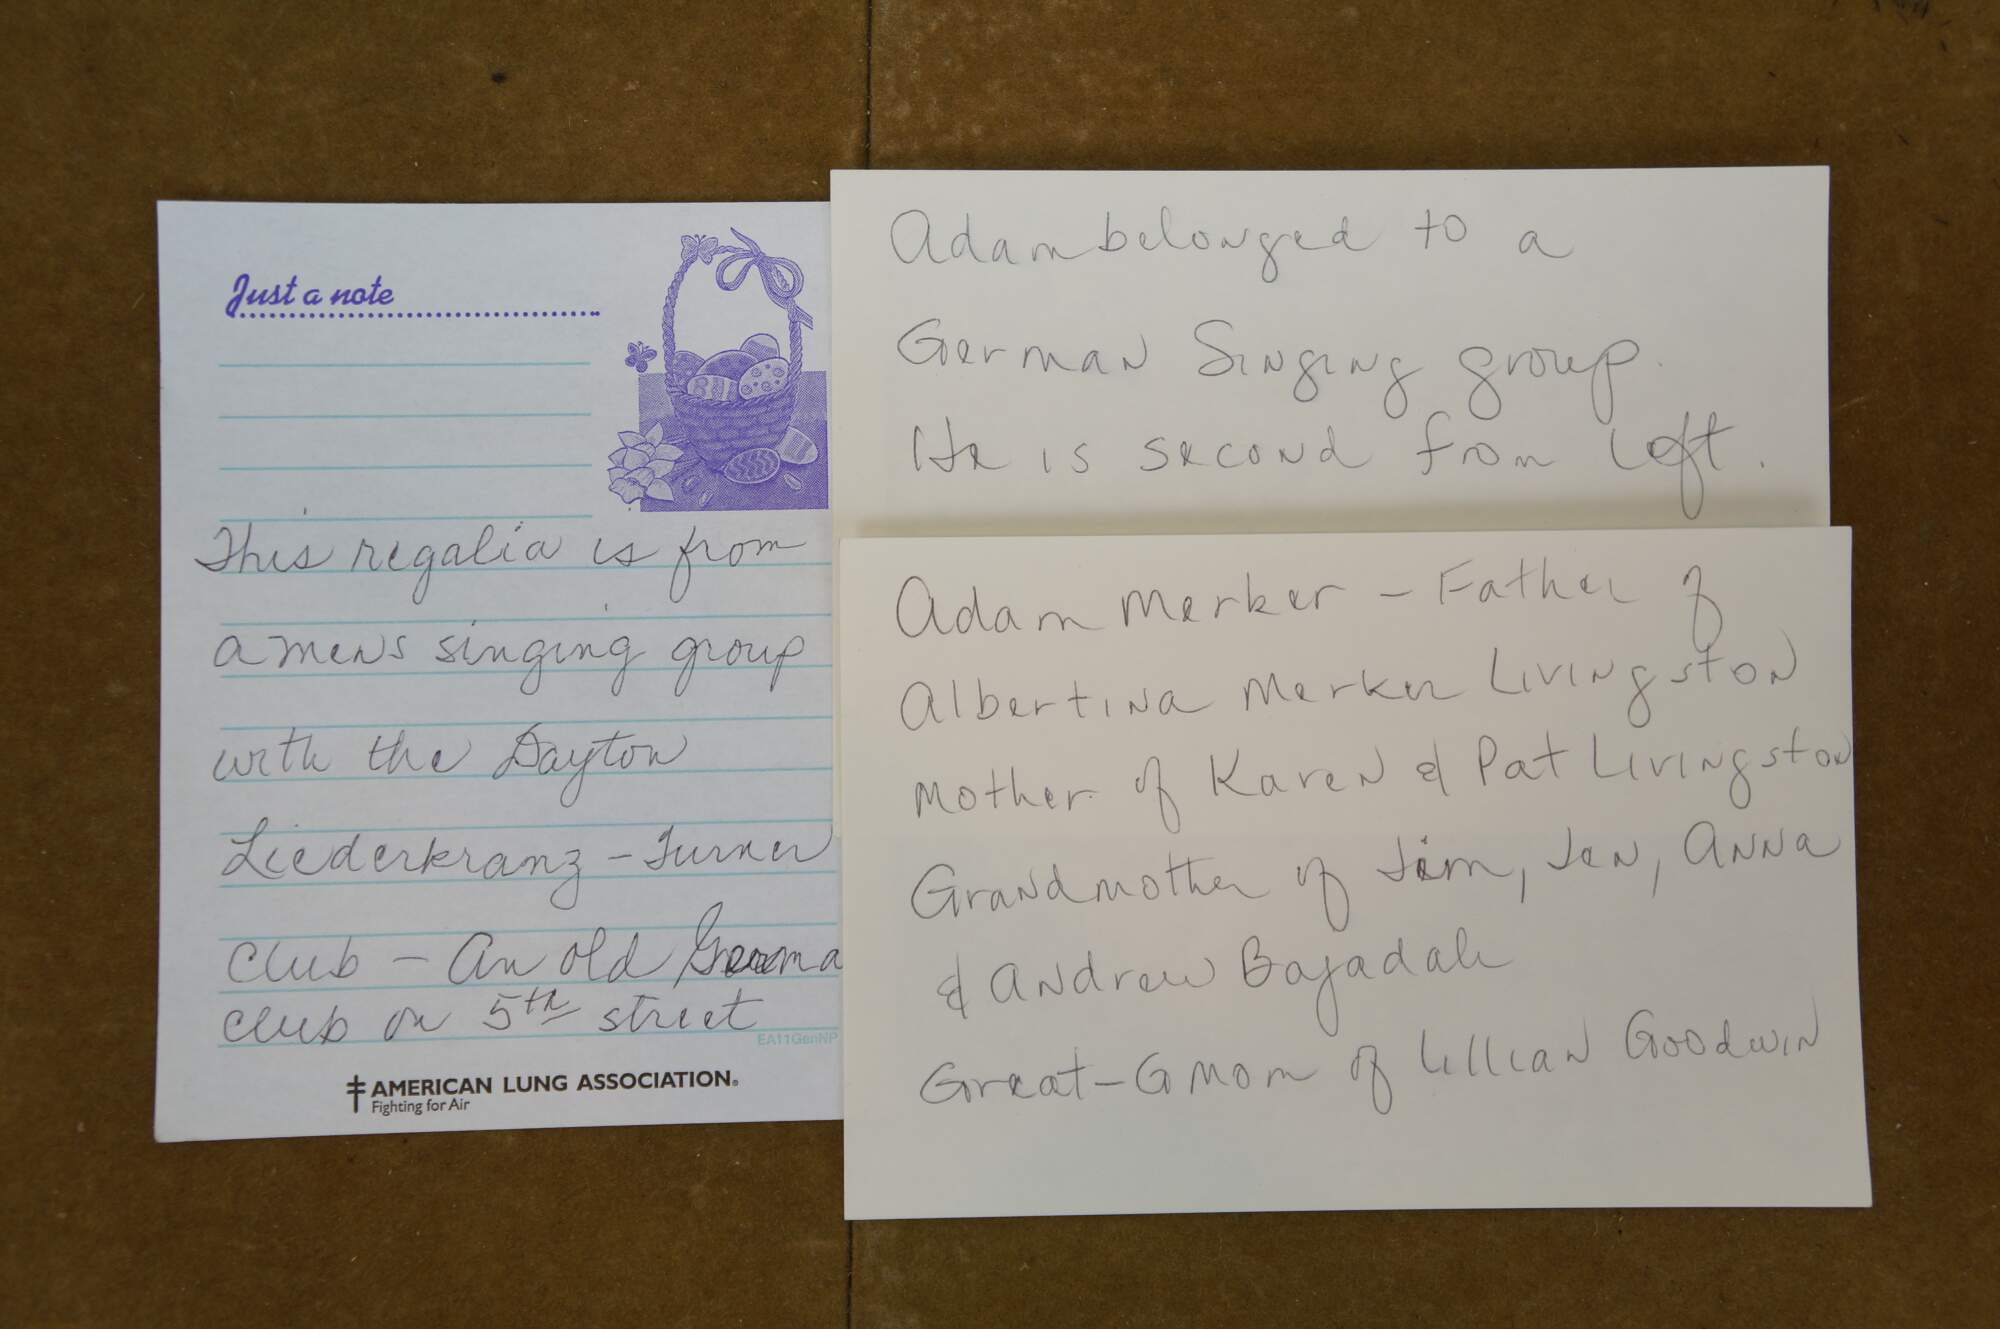 Just a note
This regalia is from
a mens singing group
with the Dayton
Liederkranz - Turner
club - An old Germa
club on 5th street
EA11GenNP
AMERICAN LUNG ASSOCIATION®
Fighting for Air
Adam belonged to a
German Singing group.
He is second from left.
Adam Merker - Father of
Albertina Merker Livingston
Mother of Karen & Pat Livingston
Grandmother of Jim, Jen, Anna
& Andrew Bajadali
Great-Gmom of Lillian Goodwin